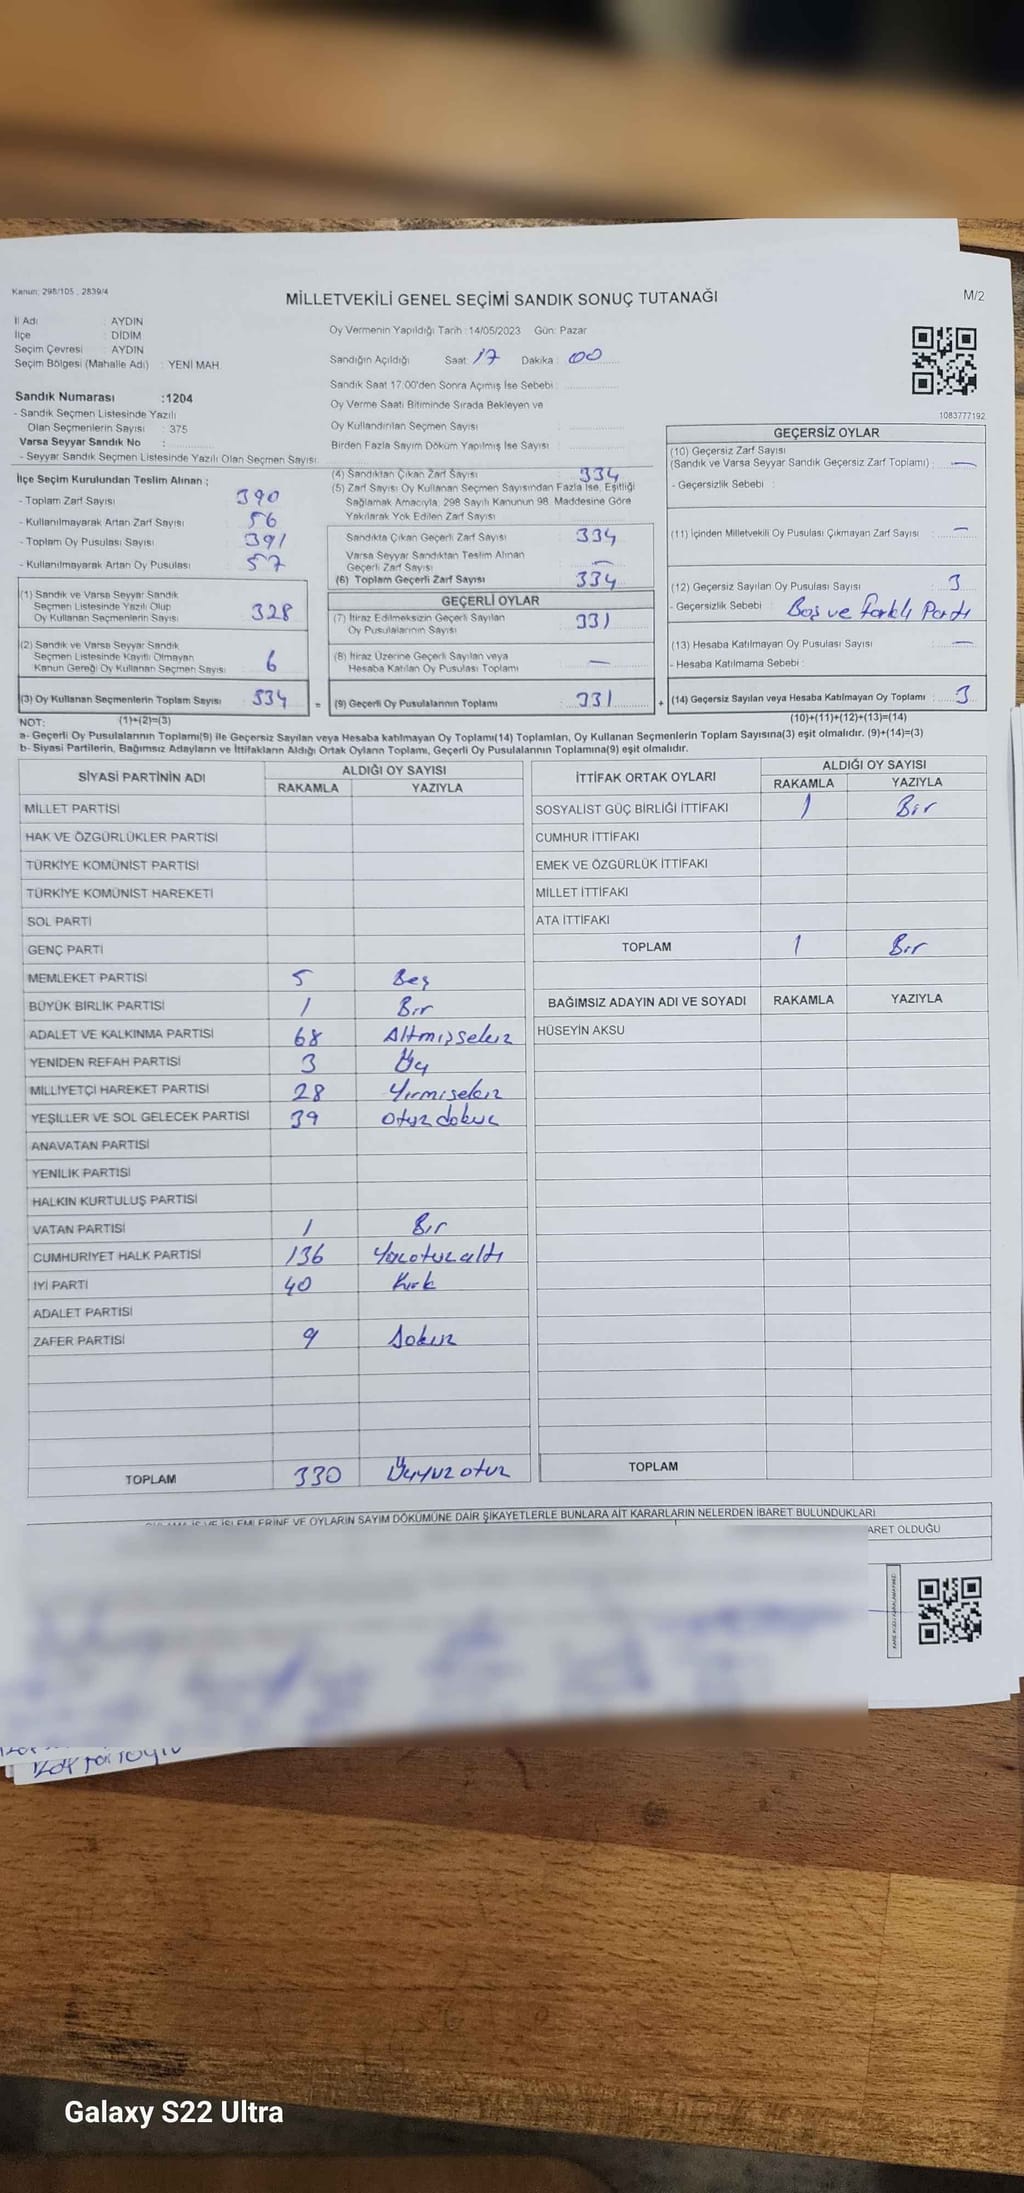 Kanun: 298/105 , 2839/4
MİLLETVEKİLİ GENEL SEÇİMİ SANDIK SONUÇ TUTANAĞI
M/2
İl Adı : AYDIN
İlçe : DİDİM
Seçim Çevresi : AYDIN
Seçim Bölgesi (Mahalle Adı) : YENİ MAH.
Sandık Numarası :1204
- Sandık Seçmen Listesinde Yazılı
Olan Seçmenlerin Sayısı : 375
Varsa Seyyar Sandık No :
- Seyyar Sandık Seçmen Listesinde Yazılı Olan Seçmen Sayısı:
Oy Vermenin Yapıldığı Tarih :14/05/2023 Gün: Pazar
Sandığın Açıldığı Saat: 17 Dakika : 00
Sandık Saat 17:00'den Sonra Açımış İse Sebebi :
Oy Verme Saati Bitiminde Sırada Bekleyen ve
Oy Kullandırılan Seçmen Sayısı :
Birden Fazla Sayım Döküm Yapılmış İse Sayısı :
1083777192
İlçe Seçim Kurulundan Teslim Alınan ;
- Toplam Zarf Sayısı : 390
- Kullanılmayarak Artan Zarf Sayısı : 56
- Toplam Oy Pusulası Sayısı : 391
- Kullanılmayarak Artan Oy Pusulası : 57
(1) Sandık ve Varsa Seyyar Sandık
Seçmen Listesinde Yazılı Olup
Oy Kullanan Seçmenlerin Sayısı : 328
(2) Sandık ve Varsa Seyyar Sandık
Seçmen Listesinde Kayıtlı Olmayan
Kanun Gereği Oy Kullanan Seçmen Sayısı : 6
(3) Oy Kullanan Seçmenlerin Toplam Sayısı : 334 =
(4) Sandıktan Çıkan Zarf Sayısı : 334
(5) Zarf Sayısı Oy Kullanan Seçmen Sayısından Fazla İse, Eşitliği
Sağlamak Amacıyla, 298 Sayılı Kanunun 98. Maddesine Göre
Yakılarak Yok Edilen Zarf Sayısı :
Sandıkta Çıkan Geçerli Zarf Sayısı : 334
Varsa Seyyar Sandıktan Teslim Alınan
Geçerli Zarf Sayısı : —
(6) Toplam Geçerli Zarf Sayısı : 334
GEÇERLİ OYLAR
(7) İtiraz Edilmeksizin Geçerli Sayılan
Oy Pusulalarının Sayısı : 331
(8) İtiraz Üzerine Geçerli Sayılan veya
Hesaba Katılan Oy Pusulası Toplamı : —
(9) Geçerli Oy Pusulalarının Toplamı : 331 +
GEÇERSİZ OYLAR
(10) Geçersiz Zarf Sayısı
(Sandık ve Varsa Seyyar Sandık Geçersiz Zarf Toplamı) : —
- Geçersizlik Sebebi :
(11) İçinden Milletvekili Oy Pusulası Çıkmayan Zarf Sayısı : —
(12) Geçersiz Sayılan Oy Pusulası Sayısı : 3
- Geçersizlik Sebebi : Boş ve farklı Parti
(13) Hesaba Katılmayan Oy Pusulası Sayısı : —
- Hesaba Katılmama Sebebi :
(14) Geçersiz Sayılan veya Hesaba Katılmayan Oy Toplamı : 3
NOT: (1)+(2)=(3) (10)+(11)+(12)+(13)=(14)
a- Geçerli Oy Pusulalarının Toplamı(9) ile Geçersiz Sayılan veya Hesaba katılmayan Oy Toplamı(14) Toplamları, Oy Kullanan Seçmenlerin Toplam Sayısına(3) eşit olmalıdır. (9)+(14)=(3)
b- Siyasi Partilerin, Bağımsız Adayların ve İttifakların Aldığı Ortak Oyların Toplamı, Geçerli Oy Pusulalarının Toplamına(9) eşit olmalıdır.
SİYASİ PARTİNİN ADI ALDIĞI OY SAYISI
RAKAMLA YAZIYLA
MİLLET PARTİSİ
HAK VE ÖZGÜRLÜKLER PARTİSİ
TÜRKİYE KOMÜNİST PARTİSİ
TÜRKİYE KOMÜNİST HAREKETİ
SOL PARTİ
GENÇ PARTİ
MEMLEKET PARTİSİ 5 Beş
BÜYÜK BİRLİK PARTİSİ 1 Bir
ADALET VE KALKINMA PARTİSİ 68 Altmışsekiz
YENİDEN REFAH PARTİSİ 3 Üç
MİLLİYETÇİ HAREKET PARTİSİ 28 Yirmisekiz
YEŞİLLER VE SOL GELECEK PARTİSİ 39 otuzdokuz
ANAVATAN PARTİSİ
YENİLİK PARTİSİ
HALKIN KURTULUŞ PARTİSİ
VATAN PARTİSİ 1 Bir
CUMHURİYET HALK PARTİSİ 136 Yüzotuzaltı
İYİ PARTİ 40 Kırk
ADALET PARTİSİ
ZAFER PARTİSİ 9 Dokuz
TOPLAM 330 Üçyüzotuz
İTTİFAK ORTAK OYLARI ALDIĞI OY SAYISI
RAKAMLA YAZIYLA
SOSYALİST GÜÇ BİRLİĞİ İTTİFAKI 1 Bir
CUMHUR İTTİFAKI
EMEK VE ÖZGÜRLÜK İTTİFAKI
MİLLET İTTİFAKI
ATA İTTİFAKI
TOPLAM 1 Bir
BAĞIMSIZ ADAYIN ADI VE SOYADI RAKAMLA YAZIYLA
HÜSEYİN AKSU
TOPLAM
VE OYLARIN SAYIM DÖKÜMÜNE DAİR ŞİKAYETLERLE BUNLARA AİT KARARLARIN NELERDEN İBARET BULUNDUKLARI
ARET OLDUĞU
Galaxy S22 Ultra